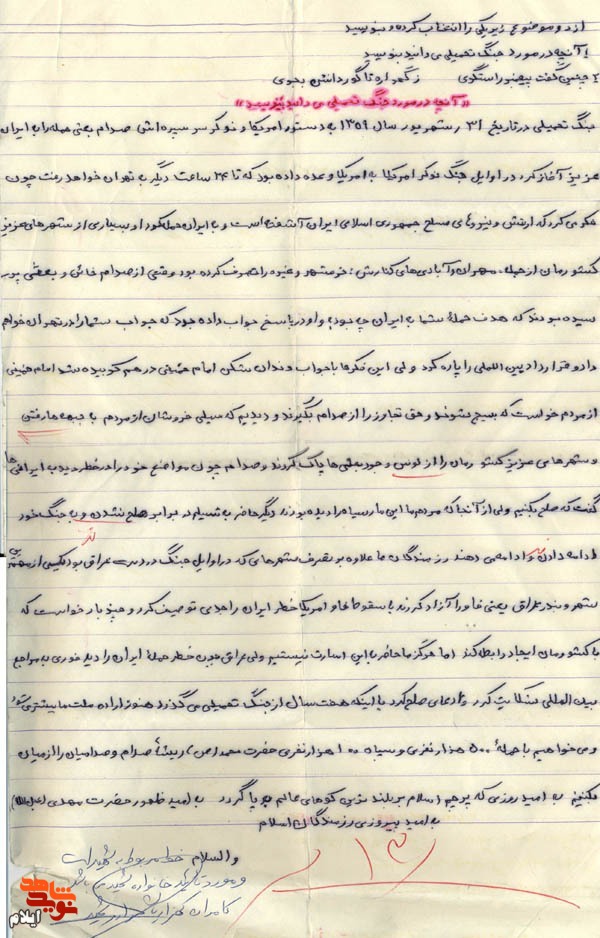 از دو موضوع زیر یکی را انتخاب کرده و بنویسید
۱ آنچه در مورد جنگ تحمیلی می دانید بنویسید
۲ چنین گفت پیغمبر راستگوی ز گهواره تا گور دانش بجوی
«آنچه در مورد جنگ تحمیلی می دانید بنویسید»
جنگ تحمیلی در تاریخ ۳۱ شهریور سال ۱۳۵۹ به دستور آمریکا و نوکر سرسپرده اش صدام یعنی حمله را به ایران
عزیز آغاز کرد در اوایل جنگ نوکر امریکا به امریکا وعده داده بود که تا ۲۴ ساعت دیگر به تهران خواهد رفت چون
فکر می کرد که ارتش و نیروهای مسلح جمهوری اسلامی ایران آشفته است و به ایران حمله کرد و بسیاری از شهرهای عزیز
کشورمان از جمله مهران و آبادی های کنارش، خرمشهر و غیره را تصرف کرده بود وقتی از صدام خائن و بعثی پر
سیده بودند که هدف حملهٔ شما به ایران چه بود؟ و او در پاسخ جواب داده بود که جواب شما را در تهران خواهم
داد و قرارداد بین المللی را پاره کرد ولی این فکرها با جواب دندان شکن امام خمینی در هم کوبیده شد امام خمینی
از مردم خواست که بسیج شوند و حق تجاوز را از صدام بگیرند و دیدیم که سیلی خروشان از مردم به جبهه ها رفتن
و شهرهای عزیز کشورمان را از لوس وجود بعثی ها پاک کردند و صدام چون مواضع خود را در خطر دید به ایرانی ها
گفت که صلح بکنیم ولی از آنجا که مردم ما این مار سیاه را دیده بودند دیگر حاضر به تسلیم در برابر صلح نشدن و به جنگ خود
ادامه دادن و ادامه می دهند رزمندگان ما علاوه بر تصرف شهرهای که در اوایل جنگ در دست عراق بود یکی از مهم
شهر و بندر عراق یعنی فاو را آزاد کردند با سقوط فاو امریکا خطر ایران را جدی توصیف کرد و چند بار خواست که
با کشورمان ایجاد رابطه کند اما هرگز ما حاضر به این اسارت نیستیم ولی عراق چون خطر حملهٔ ایران را دید فوری به مواجع
بین المللی شکایت کرد و ادعای صلح کرد با اینکه هفت سال از جنگ تحمیلی می گذرد هنوز اراده ملت ما بیشتر می شود
و می خواهیم با حملهٔ ۵۰۰ هزار نفری و سپاه ۱۰۰ هزار نفری حضرت محمد (ص) ریشهٔ صدام و صدامیان را از میان
بکنیم به امید روزی که پرچم اسلام بر بلندترین کوههای عالم بر پا گردد به امید ظهور حضرت مهدی
به امید پیروزی رزمندگان اسلام
والسلام
خط مربوط به شهید است
و مورد تأیید خانواده شهید می باشد
کامران
۱۳
نوید شاهد
ایلام